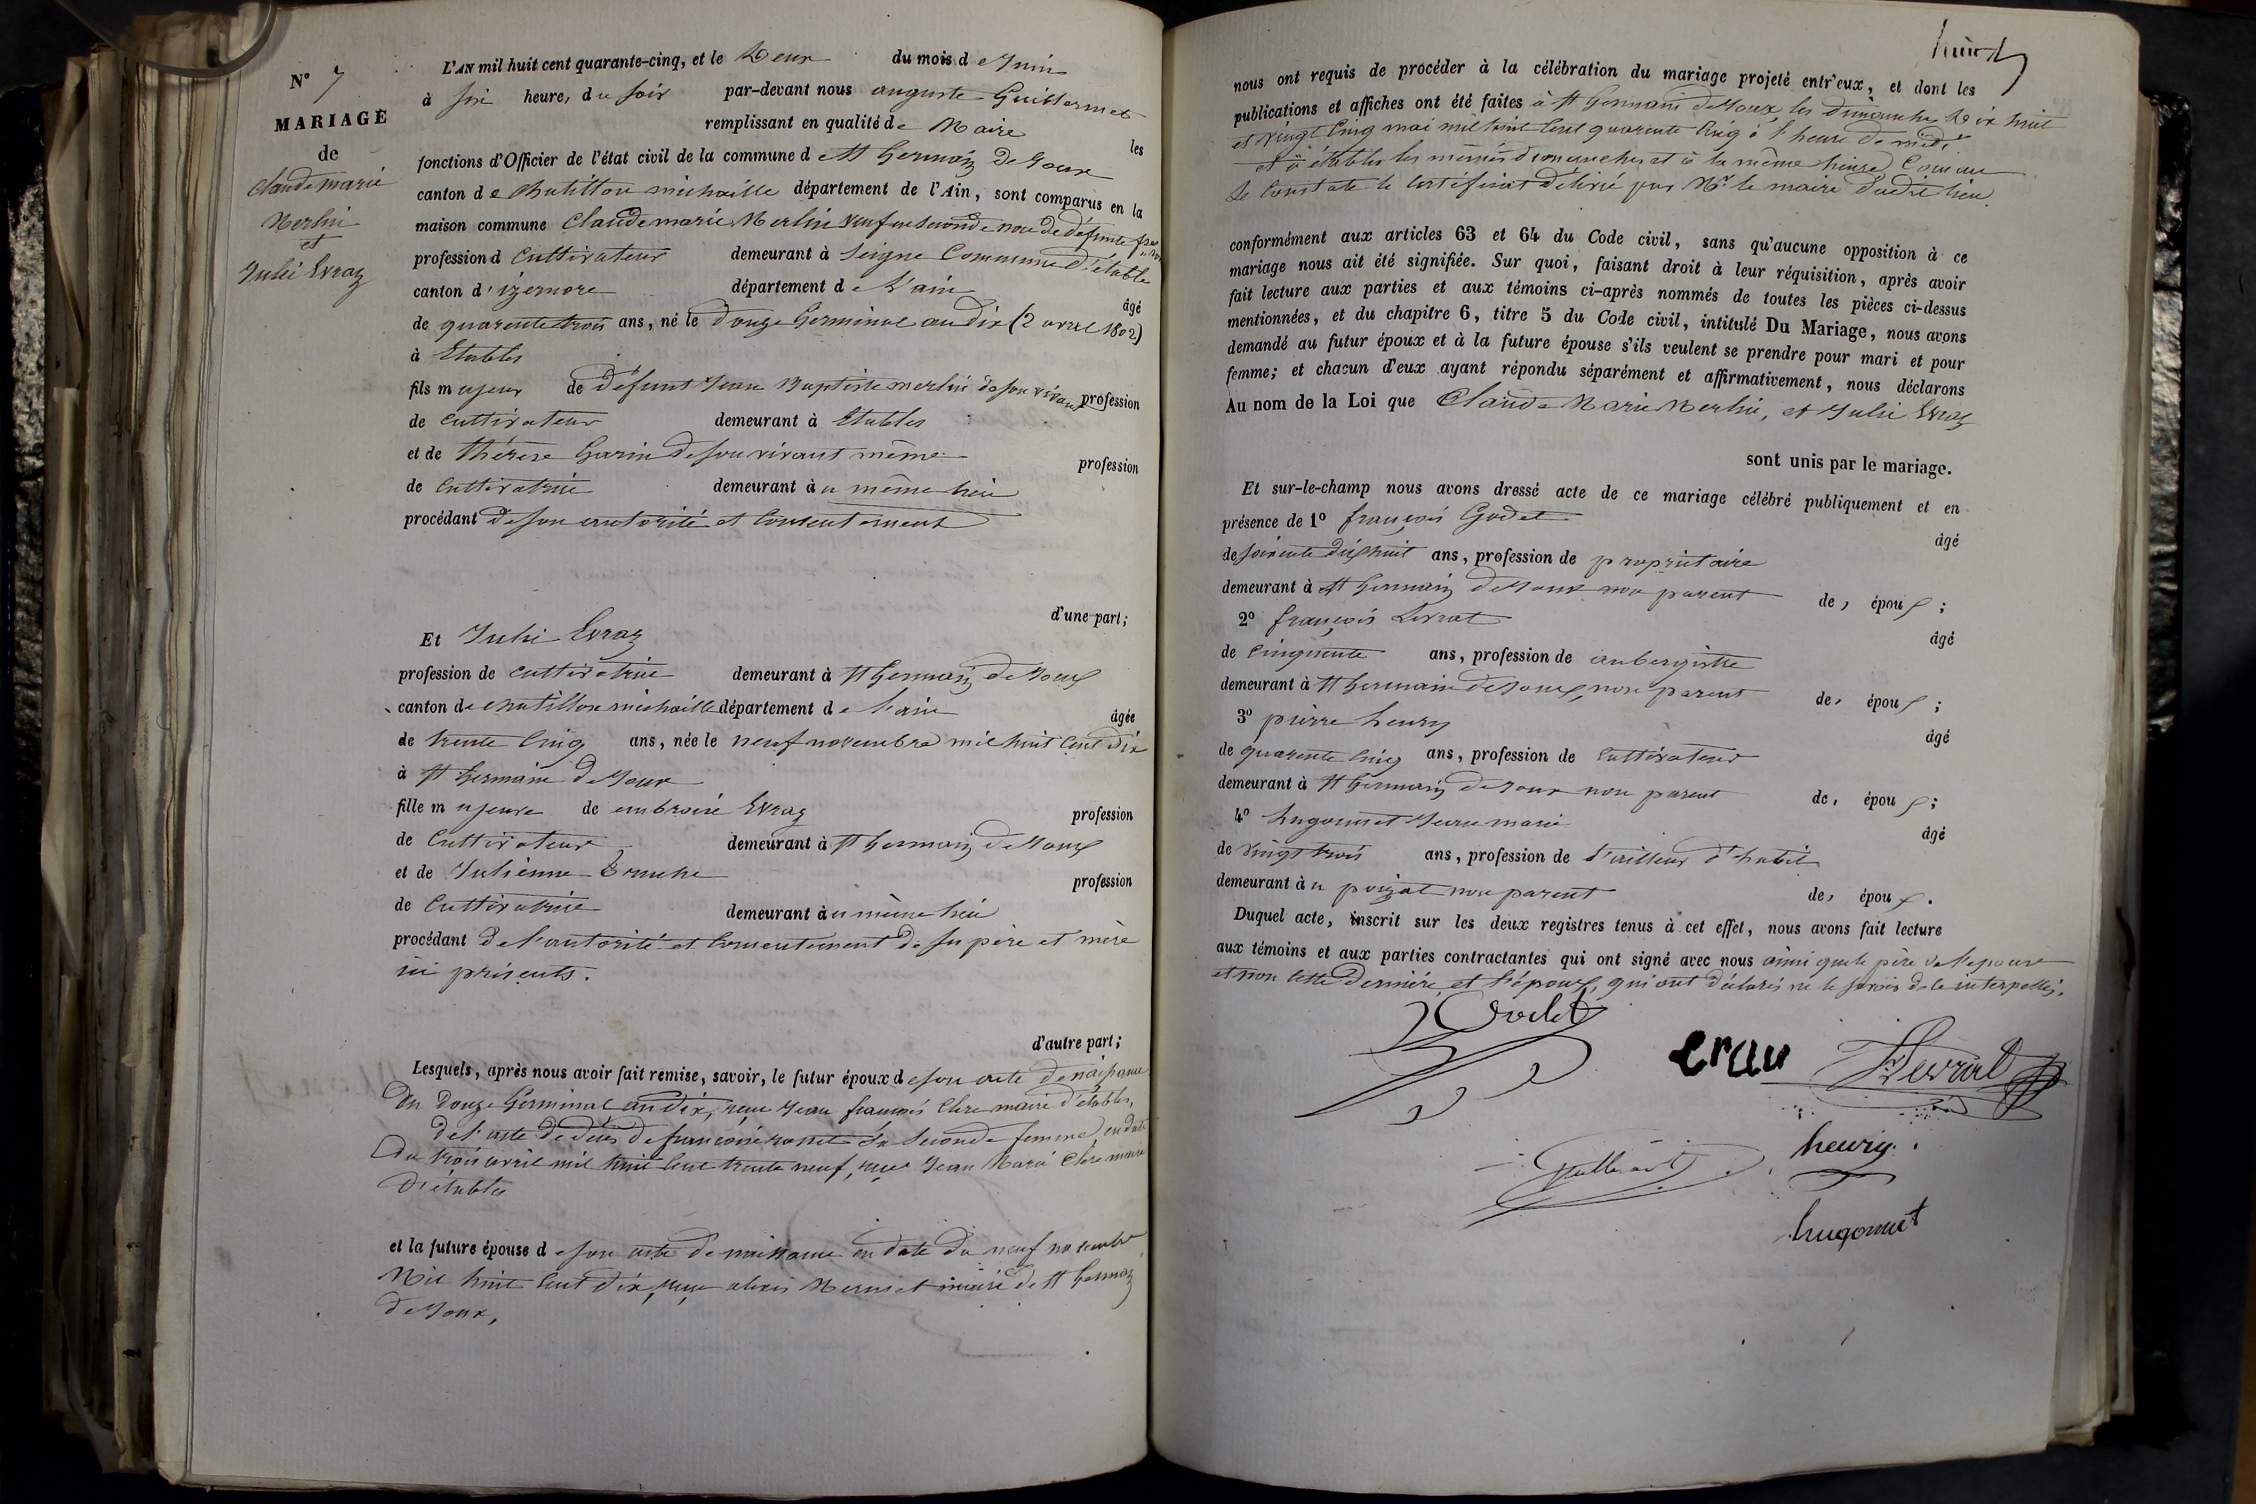 N° 7
MARIAGE
de
Claude marie
Merlin
et
Julie Evraz
L'AN mil huit cent quarante-cinq, et le Deux du mois de Juin
à six heures du soir par-devant nous auguste Guillermet
remplissant en qualité de Maire les
fonctions d'Officier de l'état civil de la commune de St Germain De Joux
canton de chatillon michaille département de l'Ain, sont comparus en la
maison commune Claude marie Merlin veuf en seconde noce de défunte
profession d cultivateur demeurant à Seigne Commune d'étable
canton d'izernore département de L'ain âgé
de quarente trois ans, né le Douze Germinal an dix (2 avril 1802)
à Etables
fils majeur de Défunt Jean Baptiste merlin de son vivant profession
de cultivateur demeurant à Etables
et de thérèse Garin De son vivant même profession
de cultivatrice demeurant au même lieu
procédant De son autorité et Consentement
d'une part;
Et Julie Evraz
profession de cultivatrice demeurant à St Germain de Joux
canton de chatillon michaille département de L'ain âgée
de trente Cinq ans, née le neuf novembre mil huit Cent Dix
à St Germain De Joux
fille majeure de embroise Evraz profession
de Cultivateur demeurant à St Germain De Joux
et de Julienne profession
de Cultivatrice demeurant au même lieu
procédant De l'autorité et Consentement De Sa père et mère
ici présents.
d'autre part;
Lesquels, après nous avoir fait remise, savoir, le futur époux de son acte De naissance
Du Douze Germinal an Dix, reçu Jean françois Clerc maire d'étables,
De l'acte De Décès De françoise rosset Sa Seconde femme, en date
Du trois avril mil huit Cent trente neuf, reçu Jean Marie Clerc maire
D'étables
et la future épouse de son acte De naissance en date Du neuf novembre
Mil huit Cent Dix, reçu alexis Mermet maire De St Germain
De Joux,
nous ont requis de procéder à la célébration du mariage projeté entr'eux, et dont les
publications et affiches ont été faites à St Germain De Joux, les Dimanches Dix huit
et vingt Cinq mai mil huit Cent quarente Cinq à l'heure De midi
et à étables les mêmes dimanches et à la même heure Comme
Le Constate le certificat Délivré par Mr le maire Dudit lieu.
conformément aux articles 63 et 64 du Code civil, sans qu'aucune opposition à ce
mariage nous ait été signifiée. Sur quoi, faisant droit à leur réquisition, après avoir
fait lecture aux parties et aux témoins ci-après nommés de toutes les pièces ci-dessus
mentionnées, et du chapitre 6, titre 5 du Code civil, intitulé Du Mariage, nous avons
demandé au futur époux et à la future épouse s'ils veulent se prendre pour mari et pour
femme; et chacun d'eux ayant répondu séparément et affirmativement, nous déclarons
Au nom de la Loi que Claude Marie Merlin, et Julie Evraz
sont unis par le mariage.
Et sur-le-champ nous avons dressé acte de ce mariage célébré publiquement et en
présence de 1° françois Godet âgé
de soixente dix huit ans, profession de propriétaire
demeurant à St Germain De Joux non parent des époux;
2° françois Levrat âgé
de Cinquente ans, profession de aubergiste
demeurant à St Germain De Joux, non parent des époux;
3° pierre henry âgé
de quarente Cinq ans, profession de Cultivateur
demeurant à St Germain De Joux non parent des époux;
4° hugonnet Jean marie âgé
de Vingt trois ans, profession de tailleur d'habit
demeurant au poizat non parent des époux.
Duquel acte, inscrit sur les deux registres tenus à cet effet, nous avons fait lecture
aux témoins et aux parties contractantes qui ont signé avec nous ainsi que le père de l'épouse
et non cette Dernière, et l'époux, qui ont Déclarés ne le savoir De ce interpellés.
Godet
Evrau
Levrat
henry
hugonnet